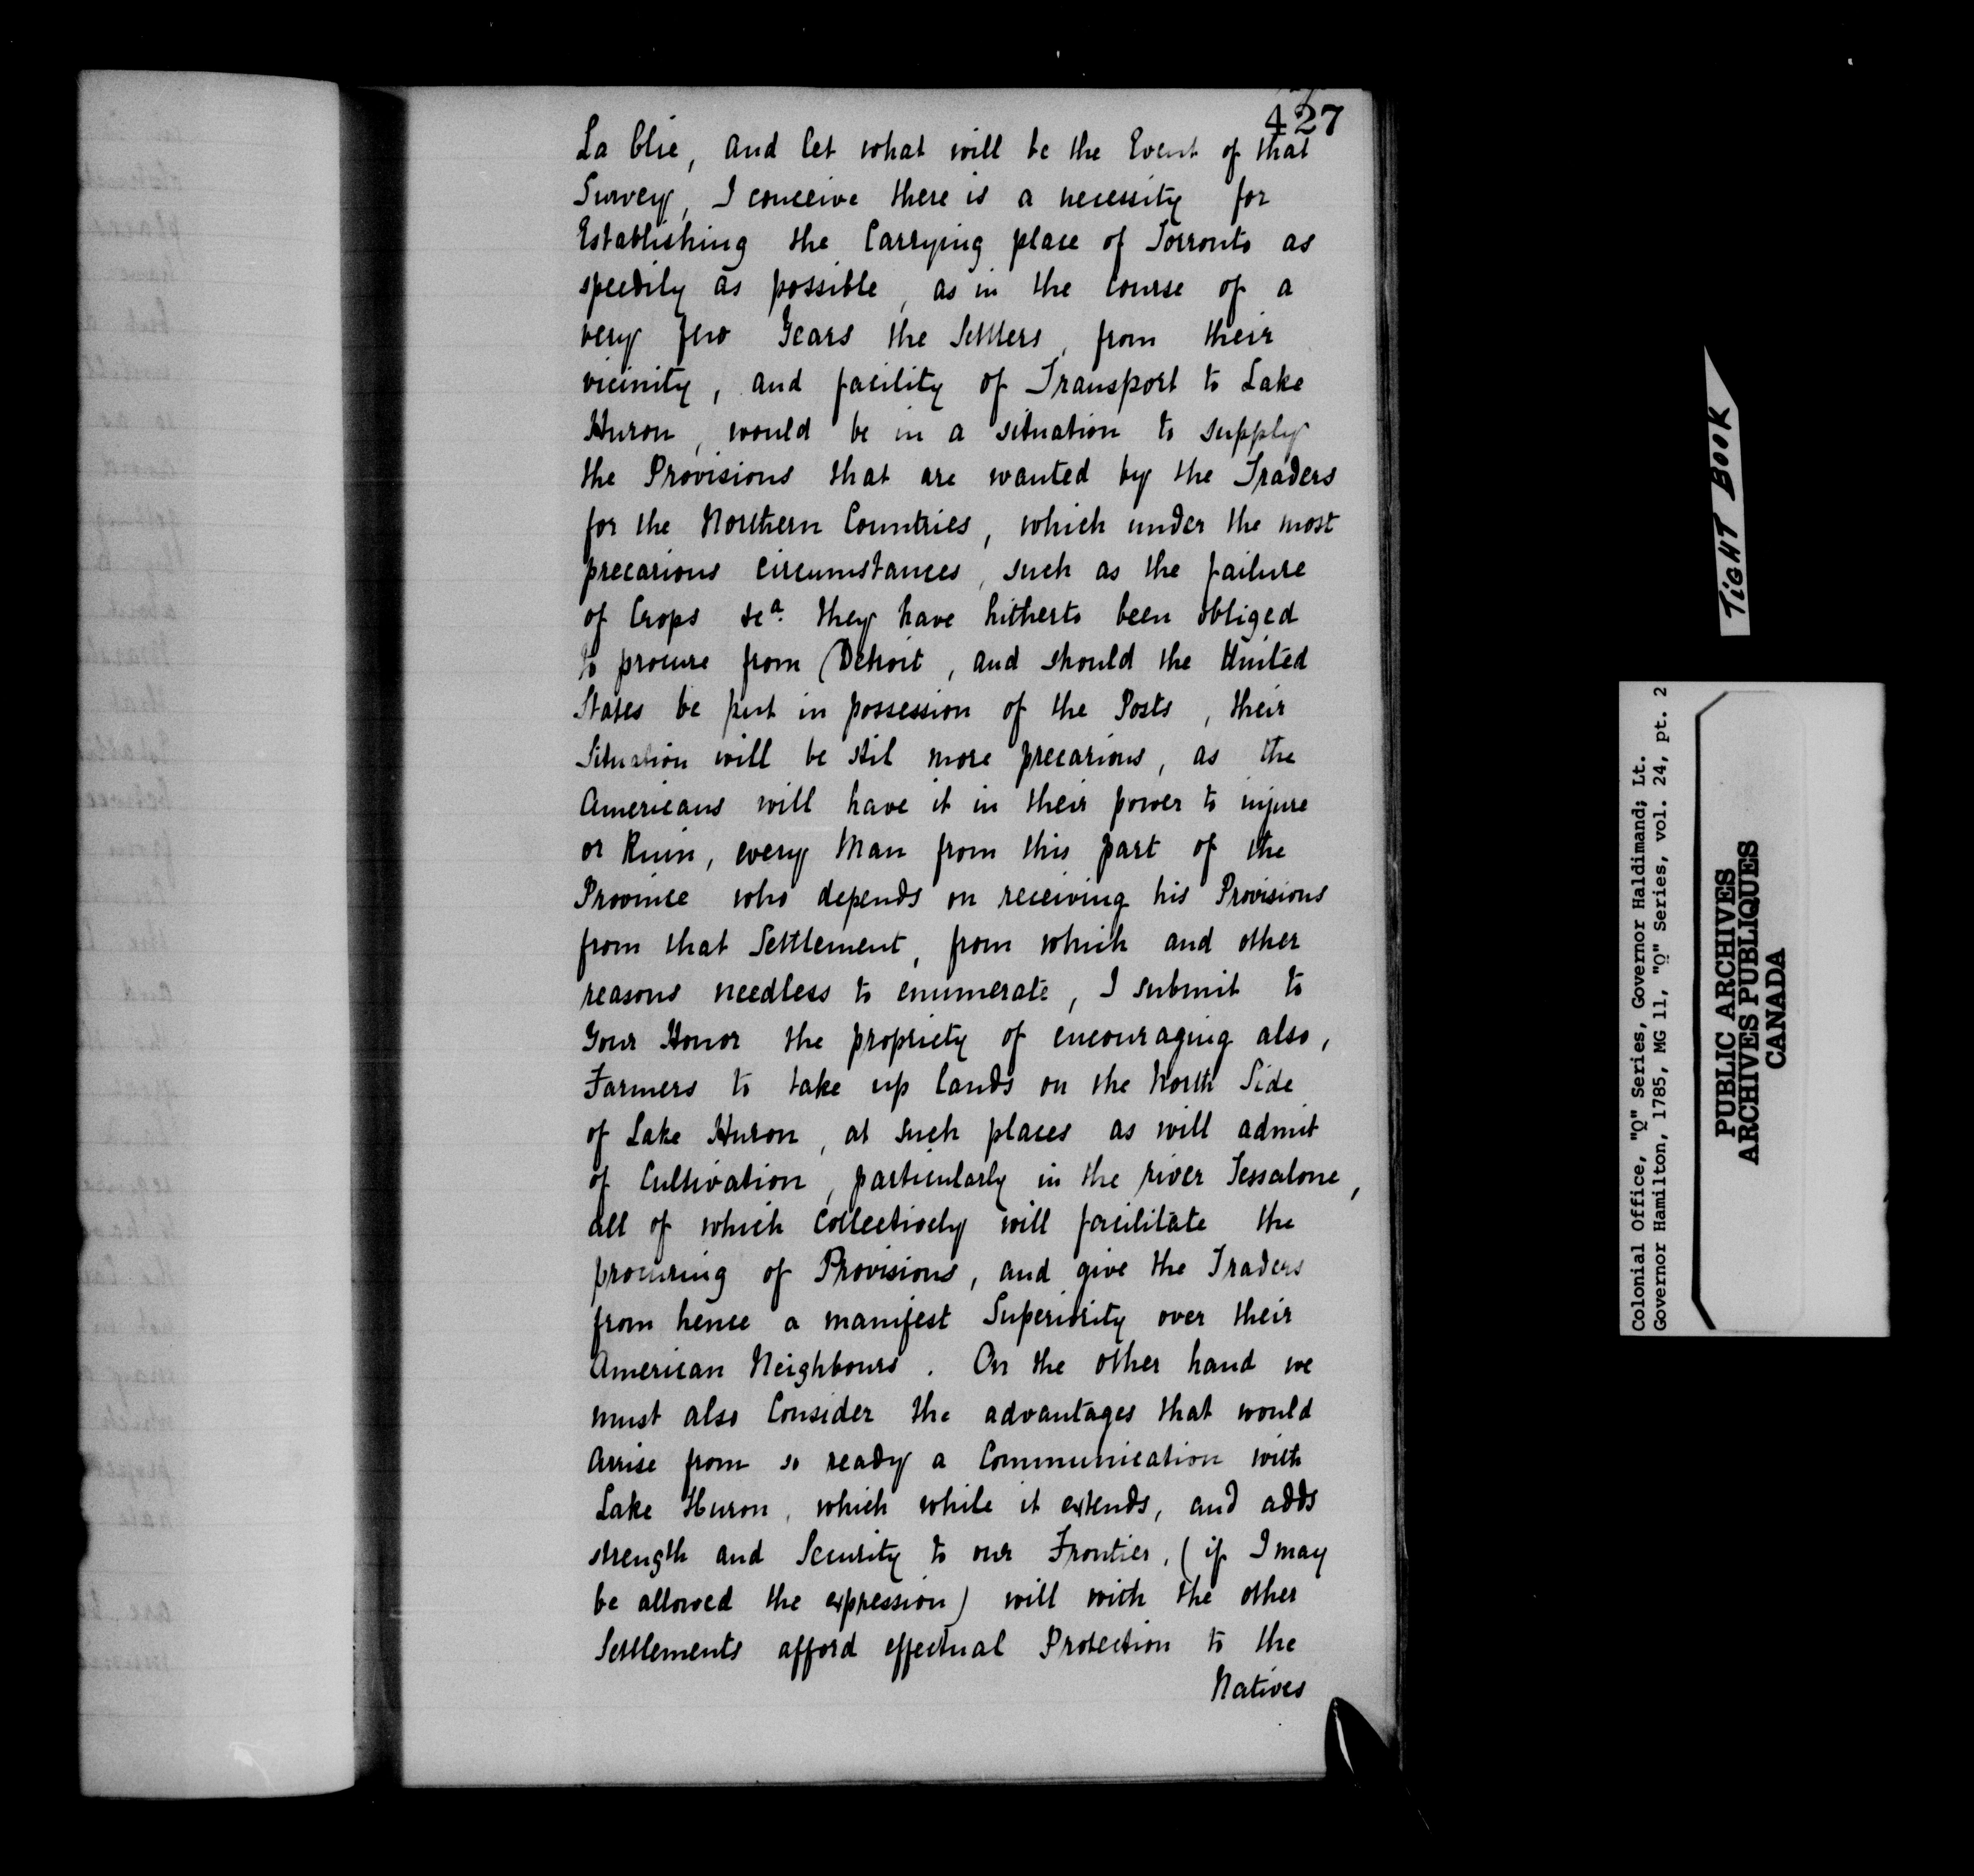 427
La Clie, and let what will be the Event of that
Survey, I conceive there is a necessity for
Establishing the Carrying place of Torronto as
speedily as possible, as in the course of a
very few Years the Settlers, from their
vicinity, and facility of Transport to Lake
Huron, would be in a situation to supply
the Provisions that are wanted by the Traders
for the Northern Countries, which under the most
precarious circumstances, such as the failure
of Crops &ca. they have hitherto been obliged
to procure from Detroit, and should the United
States be put in possession of the Posts, their
Situation will be stil more precarious, as the
Americans will have it in their power to injure
or Ruin, every Man from this part of the
Province who depends on receiving his Provisions
from that Settlement, from which and other
reasons needless to enumerate, I submit to
Your Honor the propriety of encouraging also,
Farmers to take up lands on the North Side
of Lake Huron, at such places as will admit
of Cultivation, particularly in the river Tessalone,
all of which collectively will facilitate the
procuring of Provisions, and give the Traders
from hence a manifest Superiority over their
American Neighbours. On the other hand we
must also Consider the advantages that would
Arrise from so ready a Communication with
Lake Huron, which while it extends, and adds
strength and Security to our Frontier, (if I may
be allowed the expression) will with the other
Settlements afford effectual Protection to the
Natives
TIGHT BOOK
Colonial Office, "Q" Series, Governor Haldimand; Lt.
Governor Hamilton, 1785, MG 11, "Q" Series, vol. 24, pt. 2
PUBLIC ARCHIVES
ARCHIVES PUBLIQUES
CANADA